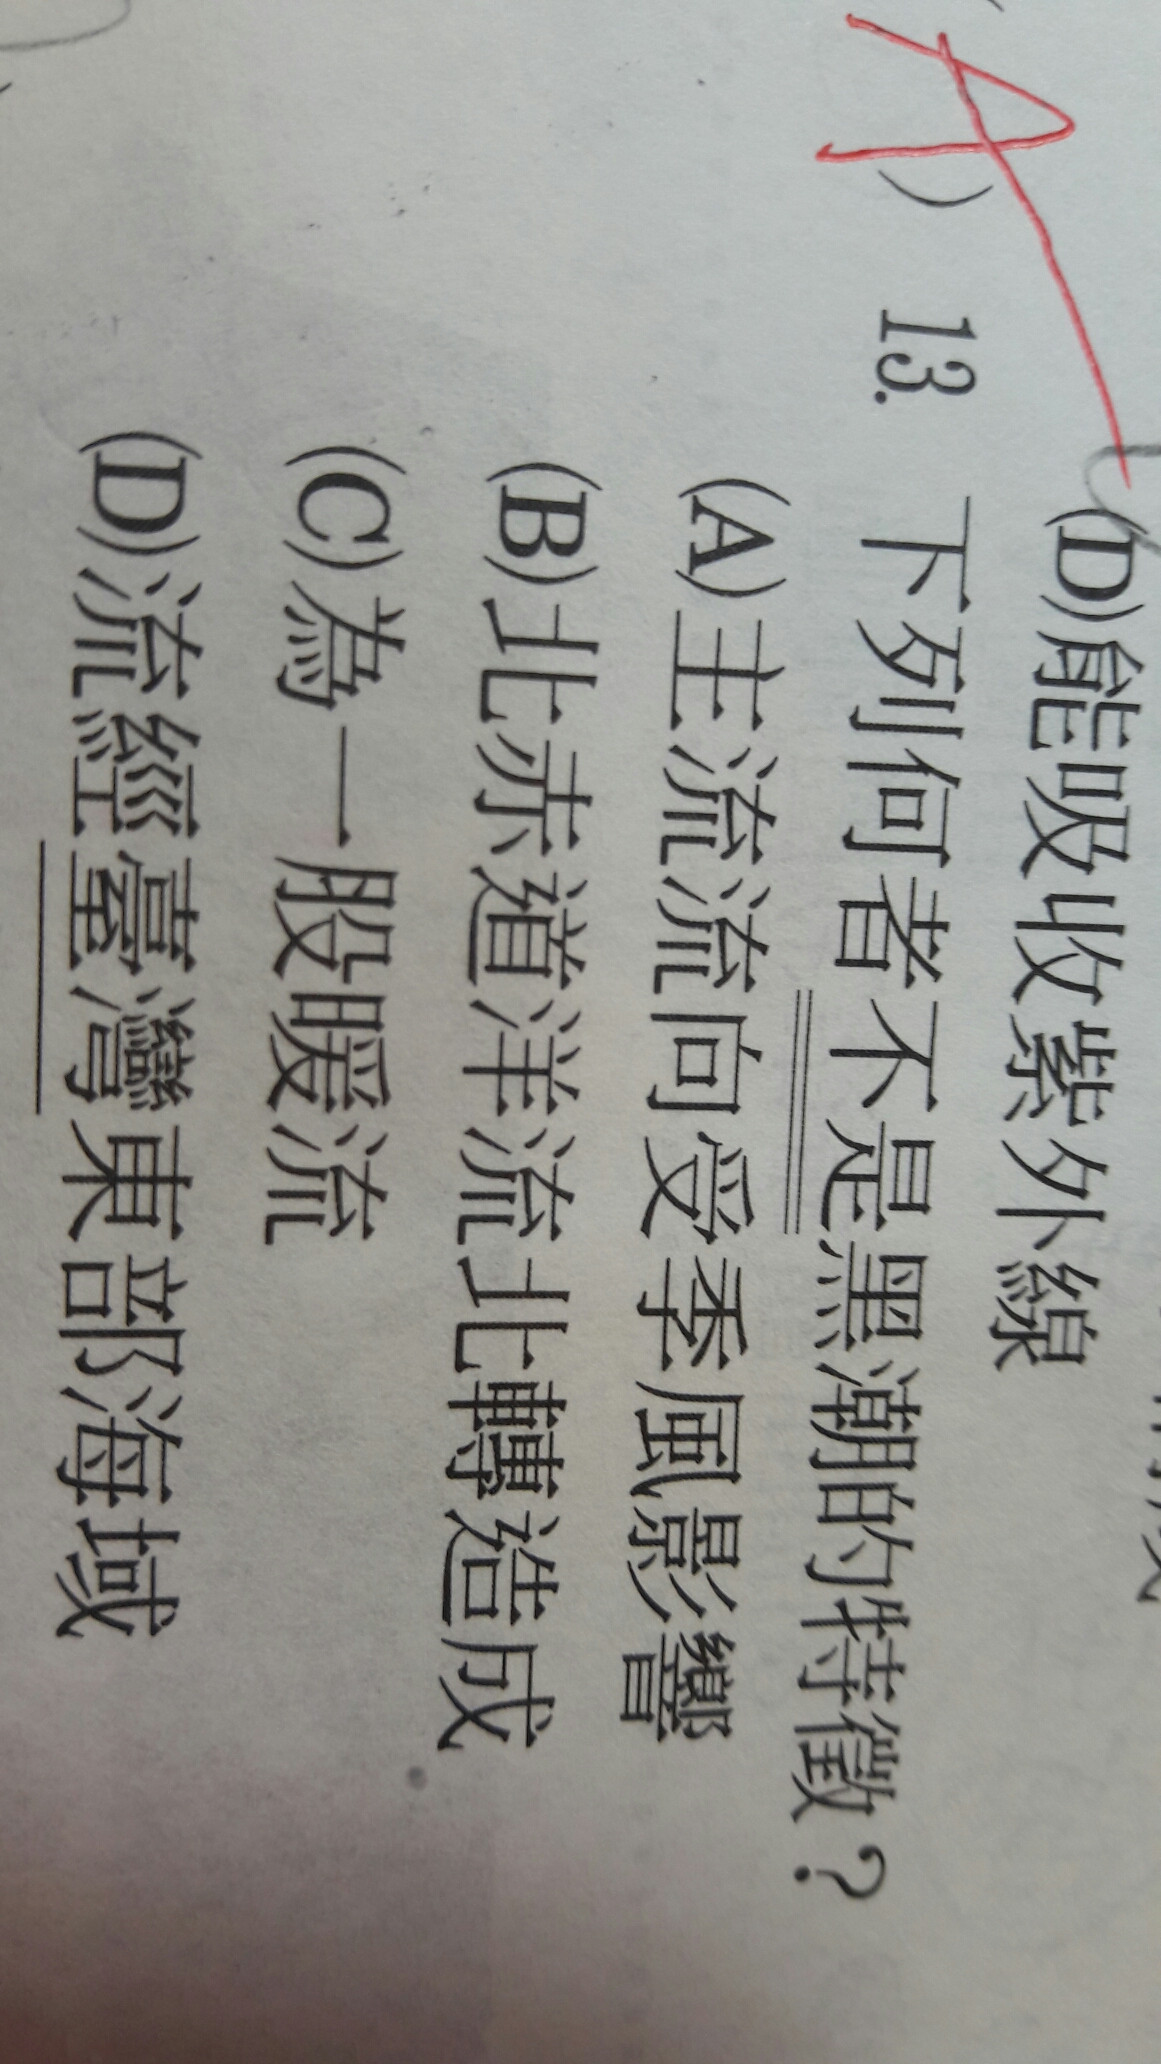 (D)能吸收紫外線
A ) 13. 下列何者不是黑潮的特徵？
(A)主流流向受季風影響
(B)北赤道洋流北轉造成
(C)為一股暖流
(D)流經臺灣東部海域